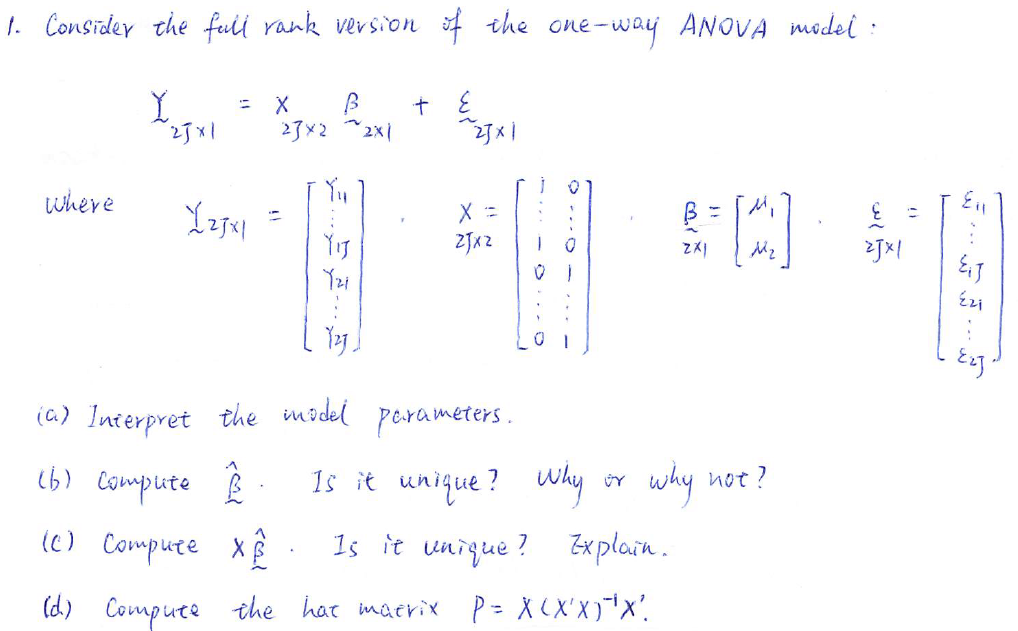 1. Consider the full rank version of the one-way ANOVA model :
Y 2J×1 = X 2J×2 β 2×1 + ε 2J×1
where Y 2J×1 = [ Y11 ⋮ Y1J Y21 ⋮ Y2J ] . X 2J×2 = [ 1 0 ⋮ ⋮ 1 0 0 1 ⋮ ⋮ 0 1 ] . β 2×1 = [ μ1 μ2 ] . ε 2J×1 = [ ε11 ⋮ ε1J ε21 ⋮ ε2J ]
(a) Interpret the model parameters.
(b) Compute β̂ . Is it unique? Why or why not?
(c) Compute Xβ̂ . Is it unique? Explain.
(d) Compute the hat matrix P = X(X'X)⁻¹X'.